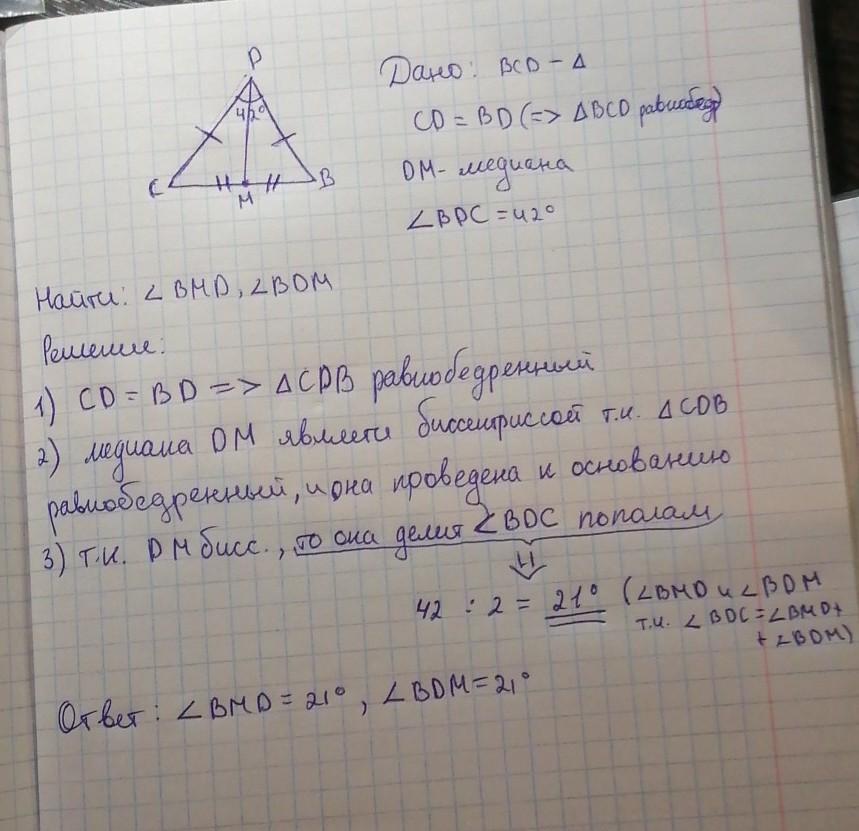 D
42°
C
M
B
Дано: BCD - Δ
CD = BD (=> ΔBCD равнобедр)
DM - медиана
∠BDC = 42°
Найти: ∠BMD, ∠BDM
Решение:
1) CD = BD => ΔCDB равнобедренный
2) медиана DM является биссектриссой т.к. ΔCDB
равнобедренный, и она проведена к основанию
3) т.к. DM бисс., то она делит ∠BDC пополам
42 : 2 = 21° (∠BMD и ∠BDM
т.к. ∠BDC = ∠BMD +
+ ∠BDM)
Ответ: ∠BMD = 21°, ∠BDM = 21°